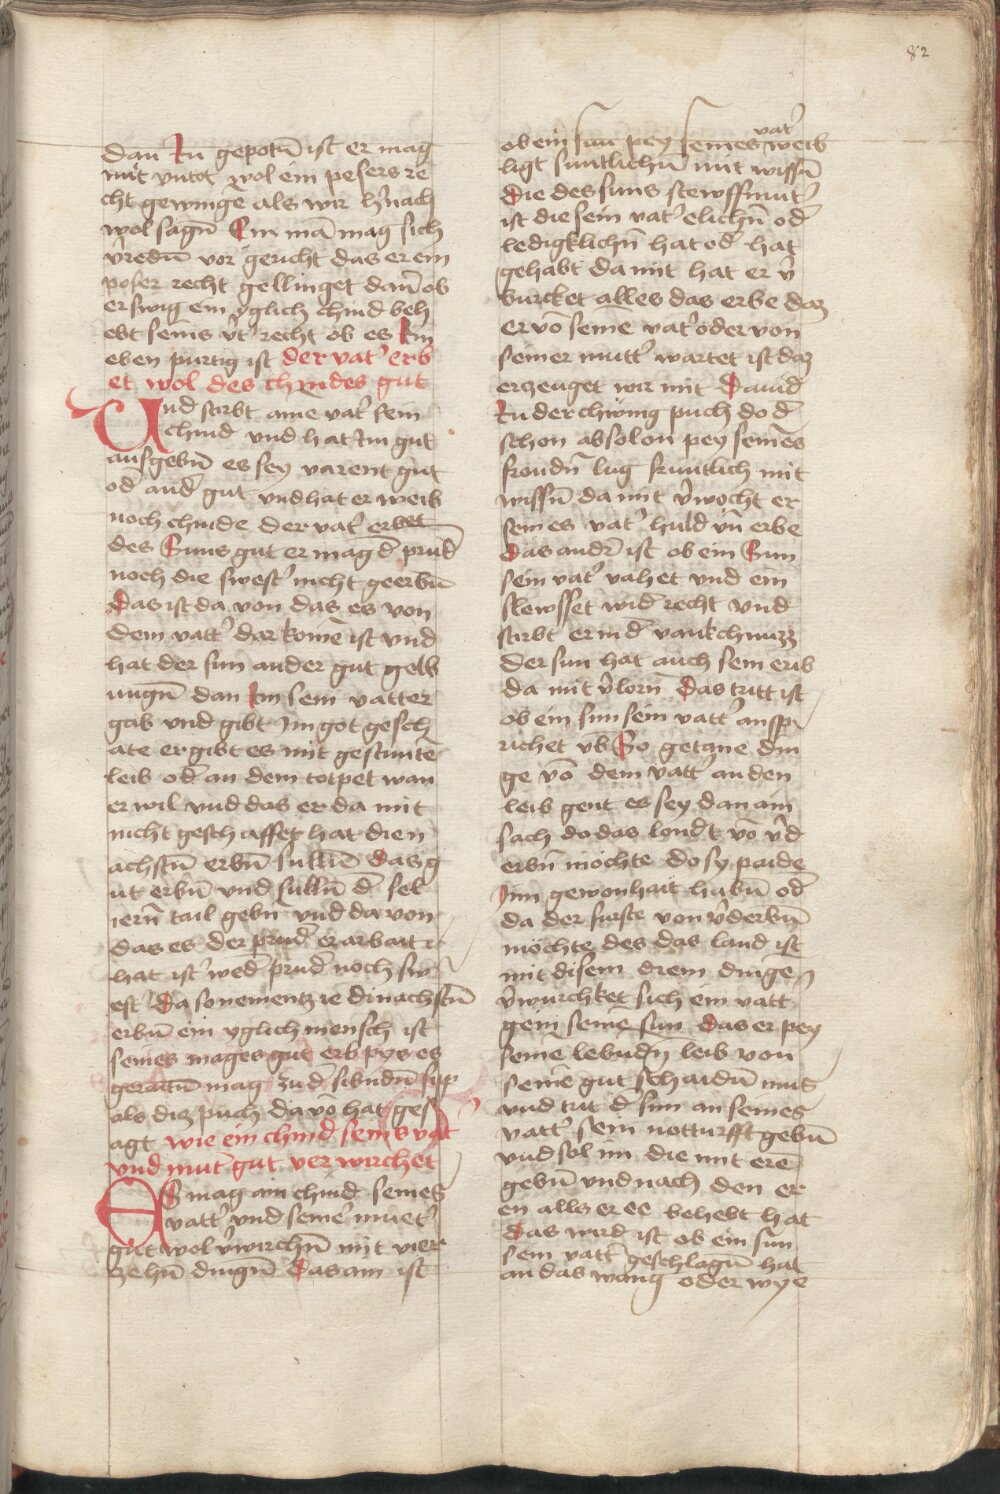 82
dan In gepotñ ist er mag
mit vntot wol ein pesers re
cht gewinnẽ als wir h̉nach
wol sagñ Ein mã mag sich
v̉redñ vor gericht das er ein
poser recht gellinget dañ ob
er swig ein yglich chind beh
ebt seins v̉t̉ recht ob es Im
eben purtig ist der vat̉ erb
et wol des chindes gut
Und stirbt aine vat̉ sein
chind vnd hat Im gut
ausgebñ es sey varent gut
od̉ and̉ gut vnd hat er weib
noch chinde der vat̉ erbet
des Suns gut er mag d̉ prud̉
noch die swest̉ nicht geerbñ
das ist da von das es von
dem vatt̉ dar komẽ ist vnd
hat der sun ander gut geb
ungñ dan Im sein vatter
gab vnd gibt Im got gesch
äte er gibt es mit gesuntẽ
leib od̉ an dem totpet wan
er wil vnd das er da mit
nicht geschaffet hat die n
achstñ erbñ sullñ das g
ut erbñ vnd sullñ d̉ sel
iern̉ tail gebn̄ vnd da von
das es der prud̉ erarbait
hat ist wed̉ prud̉ noch sw
est̉ da so nementz ie di nachstñ
erbñ ein yglich mensch ist
seines mages gut erb pys es
geraitñ mag zu d̉ sibndñ sip
als diz puch da võ hat ges
agt wie ein chind seins vat̉
vnd mut̉ gut ver wirchet
ES mag ain chind seines
vatt̉ vnd seine̊ muet̉
gut wol v̉wirchñ mit vier
zehñ dingñ das ain ist
ob ein sun pey seines vat̉ weib
ligt suntlichñ mit wissñ
die des suns stewffmut̉
ist die sein vat̉ elichñ od̉
ledigklichñ hat od̉ hat
gehabt da mit hat er v̉
burcket alles das erbe daz
er võ seinẽ vat̉ oder von
seiner mutt̉ wartet ist daz
erzeuget wir mit Dauid
In der chunig puch do d̉
schon absolon pey seinẽs
froudñ lag suntlich mit
wissñ da mit v̉wocht er
seines vat̉ huld vñ erbe
das and̉ ist ob ein Sun
sein vat̉ vahet vnd ein
slewsset wid̉ recht vnd
stirbt er in d̉ vankchnuzz
der sun hat auch sein erib
da mit v̉lorn das tritt ist
ob ein sun sein vatt̉ ansp
richet vb̉ So getane din
ge võ dem vatt̉ an den
leib gent es sey dan ain
sach do das lond̉t võ v̉d
erbñ möchte do sy paide
Inn gewonhait habñ od̉
da der furste von v̉derbñ
möchte des das land ist
mit disem drein dingẽ
v̉wurchket sich ein vatt
gein seinẽ sun das er pey
seinẽ lebndñ leib von
seinẽ gut schaidñ mus
vnd trit d̉ sun an seines
vatt̉ sein notturfft gebñ
vnd sol im die mit erẽ
gebñ vnd nach den er
en alls er ee behebt hat
das wird ist ob ein sun
sein vatt̉ geschlagñ hat
an das wang oder wye